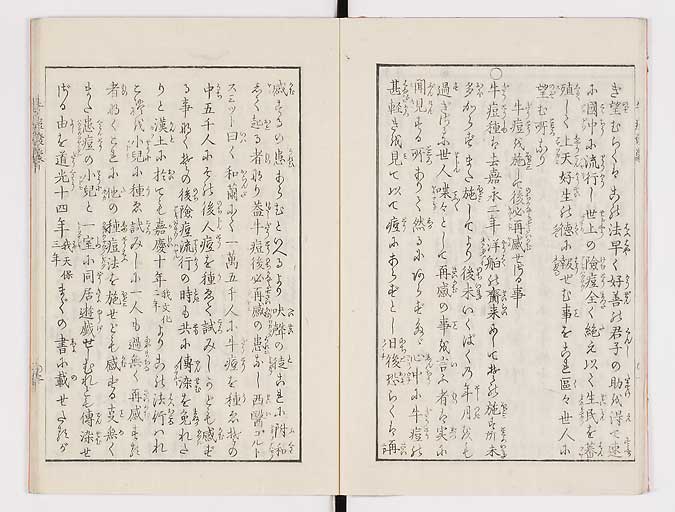 き望むらくは此法早く好善の君子の助を得て速
に國中に流行し世上の險痘全く絶え以て生民を蕃
殖して上天好生の德に報せむ事を是區々世人に
望む所なり
牛痘を施して後必再感せざる事
○牛痘種は去嘉永二年洋舶の齎来にして其施す所未
多からずまた施してより後未いくばくの年月をも
過ぎざるに世人喋々として再感の事を言ふ者は實に
聞見する所ありて然るにあらず、心中に牛痘の
甚軽きを見て以て痘にあらずとし旧後恐らくは再
感するの患あらむといへるより吠聲の徒これに附和
して起る者なり蓋牛痘後必再感の患なし西醫ゴルト
スミツト曰く和蘭にて一萬五千人に牛痘を種ゑ其の
中五千人に其後人痘を種ゑて試みしかども感ず
る事なく其後險痘流行の時も共に傳染を免れた
りと漢土に於ても嘉慶十年我文化二年より此法行はれ
是を小児に種ゑ試みしに一人も過無く再感もせる
者なくこれに他の種痘法を施せども感ずる莫無く
また患痘の小児と一室に同居遊戯せしむれども傳染せ
ざる由を道光十四年我天保三年
の書に載せたり